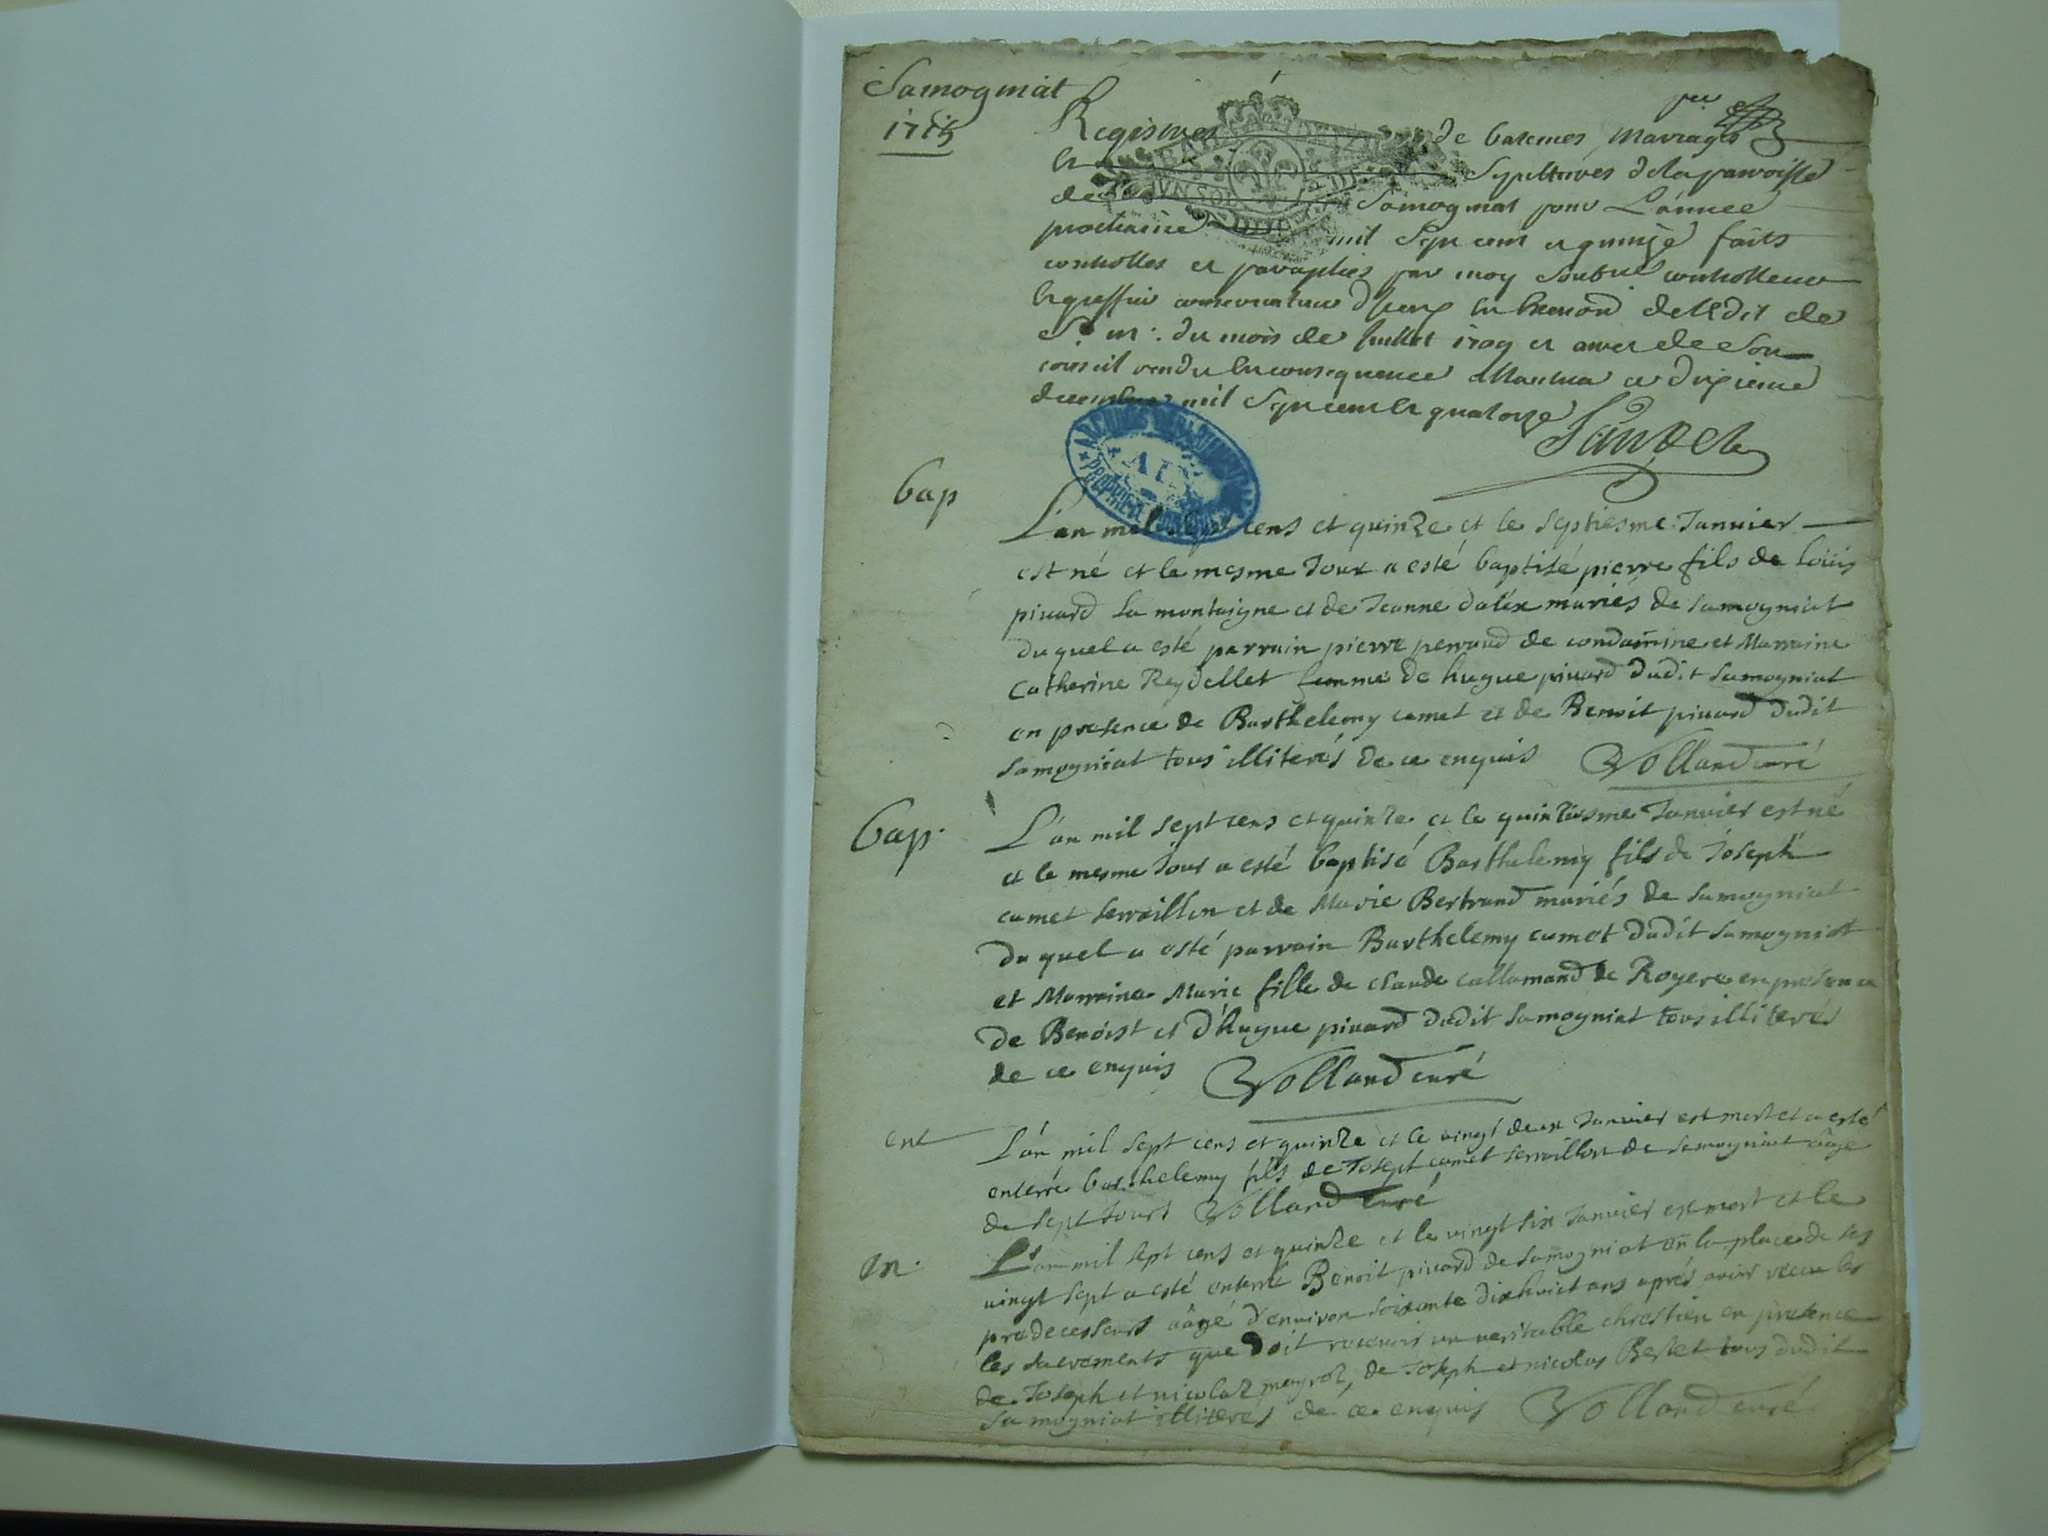 Samogniat
1715
Registres de batemes mariages
et Sepultures de la paroisse
de Samognat pour L'année
prochaine mil Sept cent et quinze faits
controlles et paraphés par moy Soubné controlleur
et greffier conservateur d'iceux en
du mois de Juillet 1709 et arret de Son
conseil rendu En consequence a Nantua ce dixieme
decembre mil Sept cent et quatorze
bap
L'an mil sept cens et quinze et le septiesme Januier
est né et le mesme Jour a esté baptisé pierre fils de loüis
piuard La montaigne et de Jeanne dalex mariés de samogniat
duquel a esté parrain pierre perraud de condamine et Marraine
Catherine Reydellet femme de hugue piuard dudit samogniat
en presence de Barthelemy camet et de Benoit piuard dudit
samogniat tous illiterés de ce enquis Volland curé
bap.
L'an mil sept cens et quinze et le quinziesme Januier est né
et le mesme Jour a esté baptisé Barthelemy fils de Joseph
camet serraillon et de Marie Bertrand mariés de samogniat
duquel a esté parrain Barthelemy camet dudit samogniat
et Marraine Marie fille de claude callamand de Royere en presence
de Benoist et d'hugue piuard dudit samogniat tous illiterés
de ce enquis Volland curé
ent
L'an mil sept cens et quinze et le vingt deux Januier est mort et a esté
enterré barthelemy fils de Joseph camet serraillon de samogniat aâge
de sept Jours Volland curé
en.
L'an mil sept cens et quinze et le vingt six Januier est mort et le
vingt sept a esté enterré Benoit piuard de samogniat en la place de ses
predecesseurs aâgé d'enuiron soixante dixhuict ans aprés avoir receu les
les sacrements que doit receuoir un veritable chrestien en presence
de Joseph et nicolaz mayroz, de Joseph et nicolas Bestet tous dudit
samogniat illiterés de ce enquis Volland curé